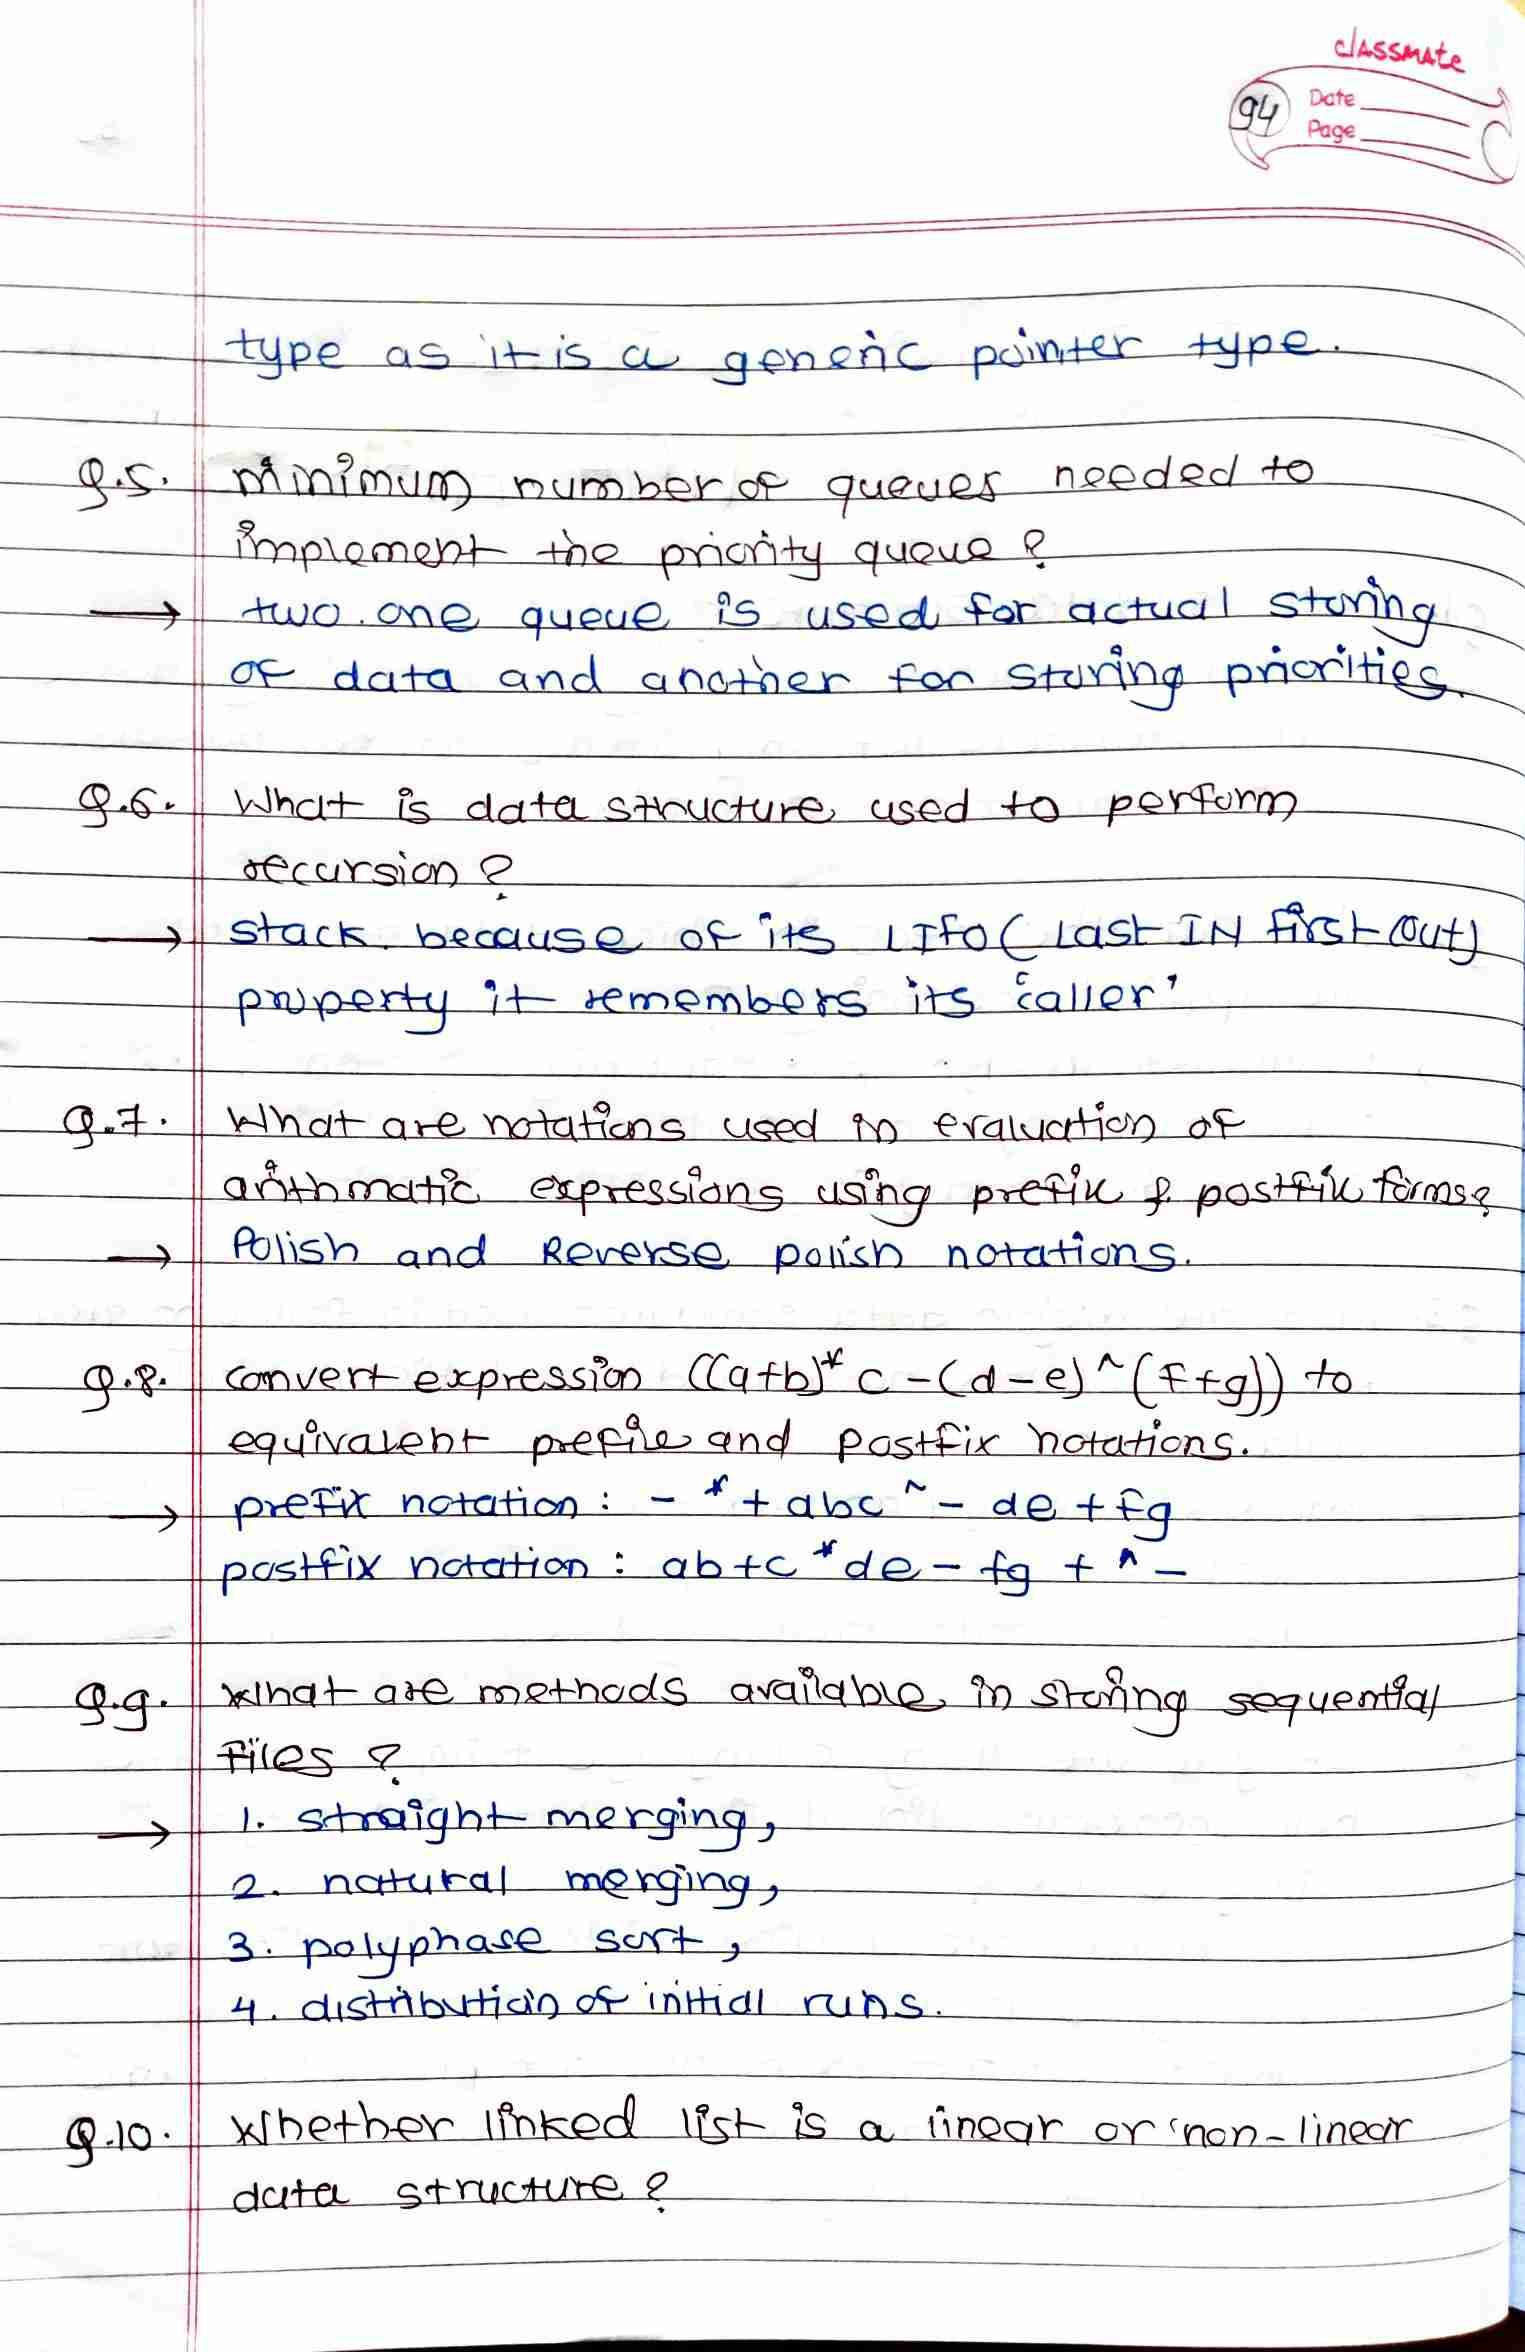 classmate
94 Date
Page
type as it is a generic pointer type.
Q.5. Minimum number of queues needed to
implement the priority queue?
→ two. one queue is used for actual storing
of data and another for storing priorities.
Q.6. What is data structure used to perform
recursion?
→ stack. because of its LIFO (Last IN first Out)
property it remembers its 'caller'
Q.7. What are notations used in evaluation of
arithmatic expressions using prefix & postfix forms?
→ Polish and Reverse polish notations.
Q.8. convert expression ((a+b)*c-(d-e)^(F+g)) to
equivalent prefix and postfix notations.
→ prefix notation : - * + abc ^ - de + fg
postfix notation : ab+c*de-fg+^-
Q.9. What are methods available in storing sequential
files?
→ 1. straight merging,
2. natural merging,
3. polyphase sort,
4. distribution of initial runs.
Q.10. Whether linked list is a linear or non-linear
data structure?